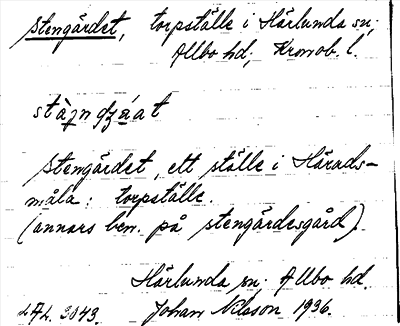 Stengärdet, torpställe i Härlunda sn;
Allbo hd, Kronob. l.
Stengärdet, ett ställe i Härads-
måla: torpställe.
(annars ben. på stengärdesgård).
Härlunda sn; Allbo hd.
LAL. 3043. Johan Nilsson 1936.